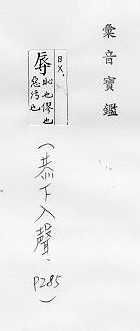 彙音寶鑑
ㆠㄨ.
辱
恥也僇也
惡污也
(恭下入聲.
P285)